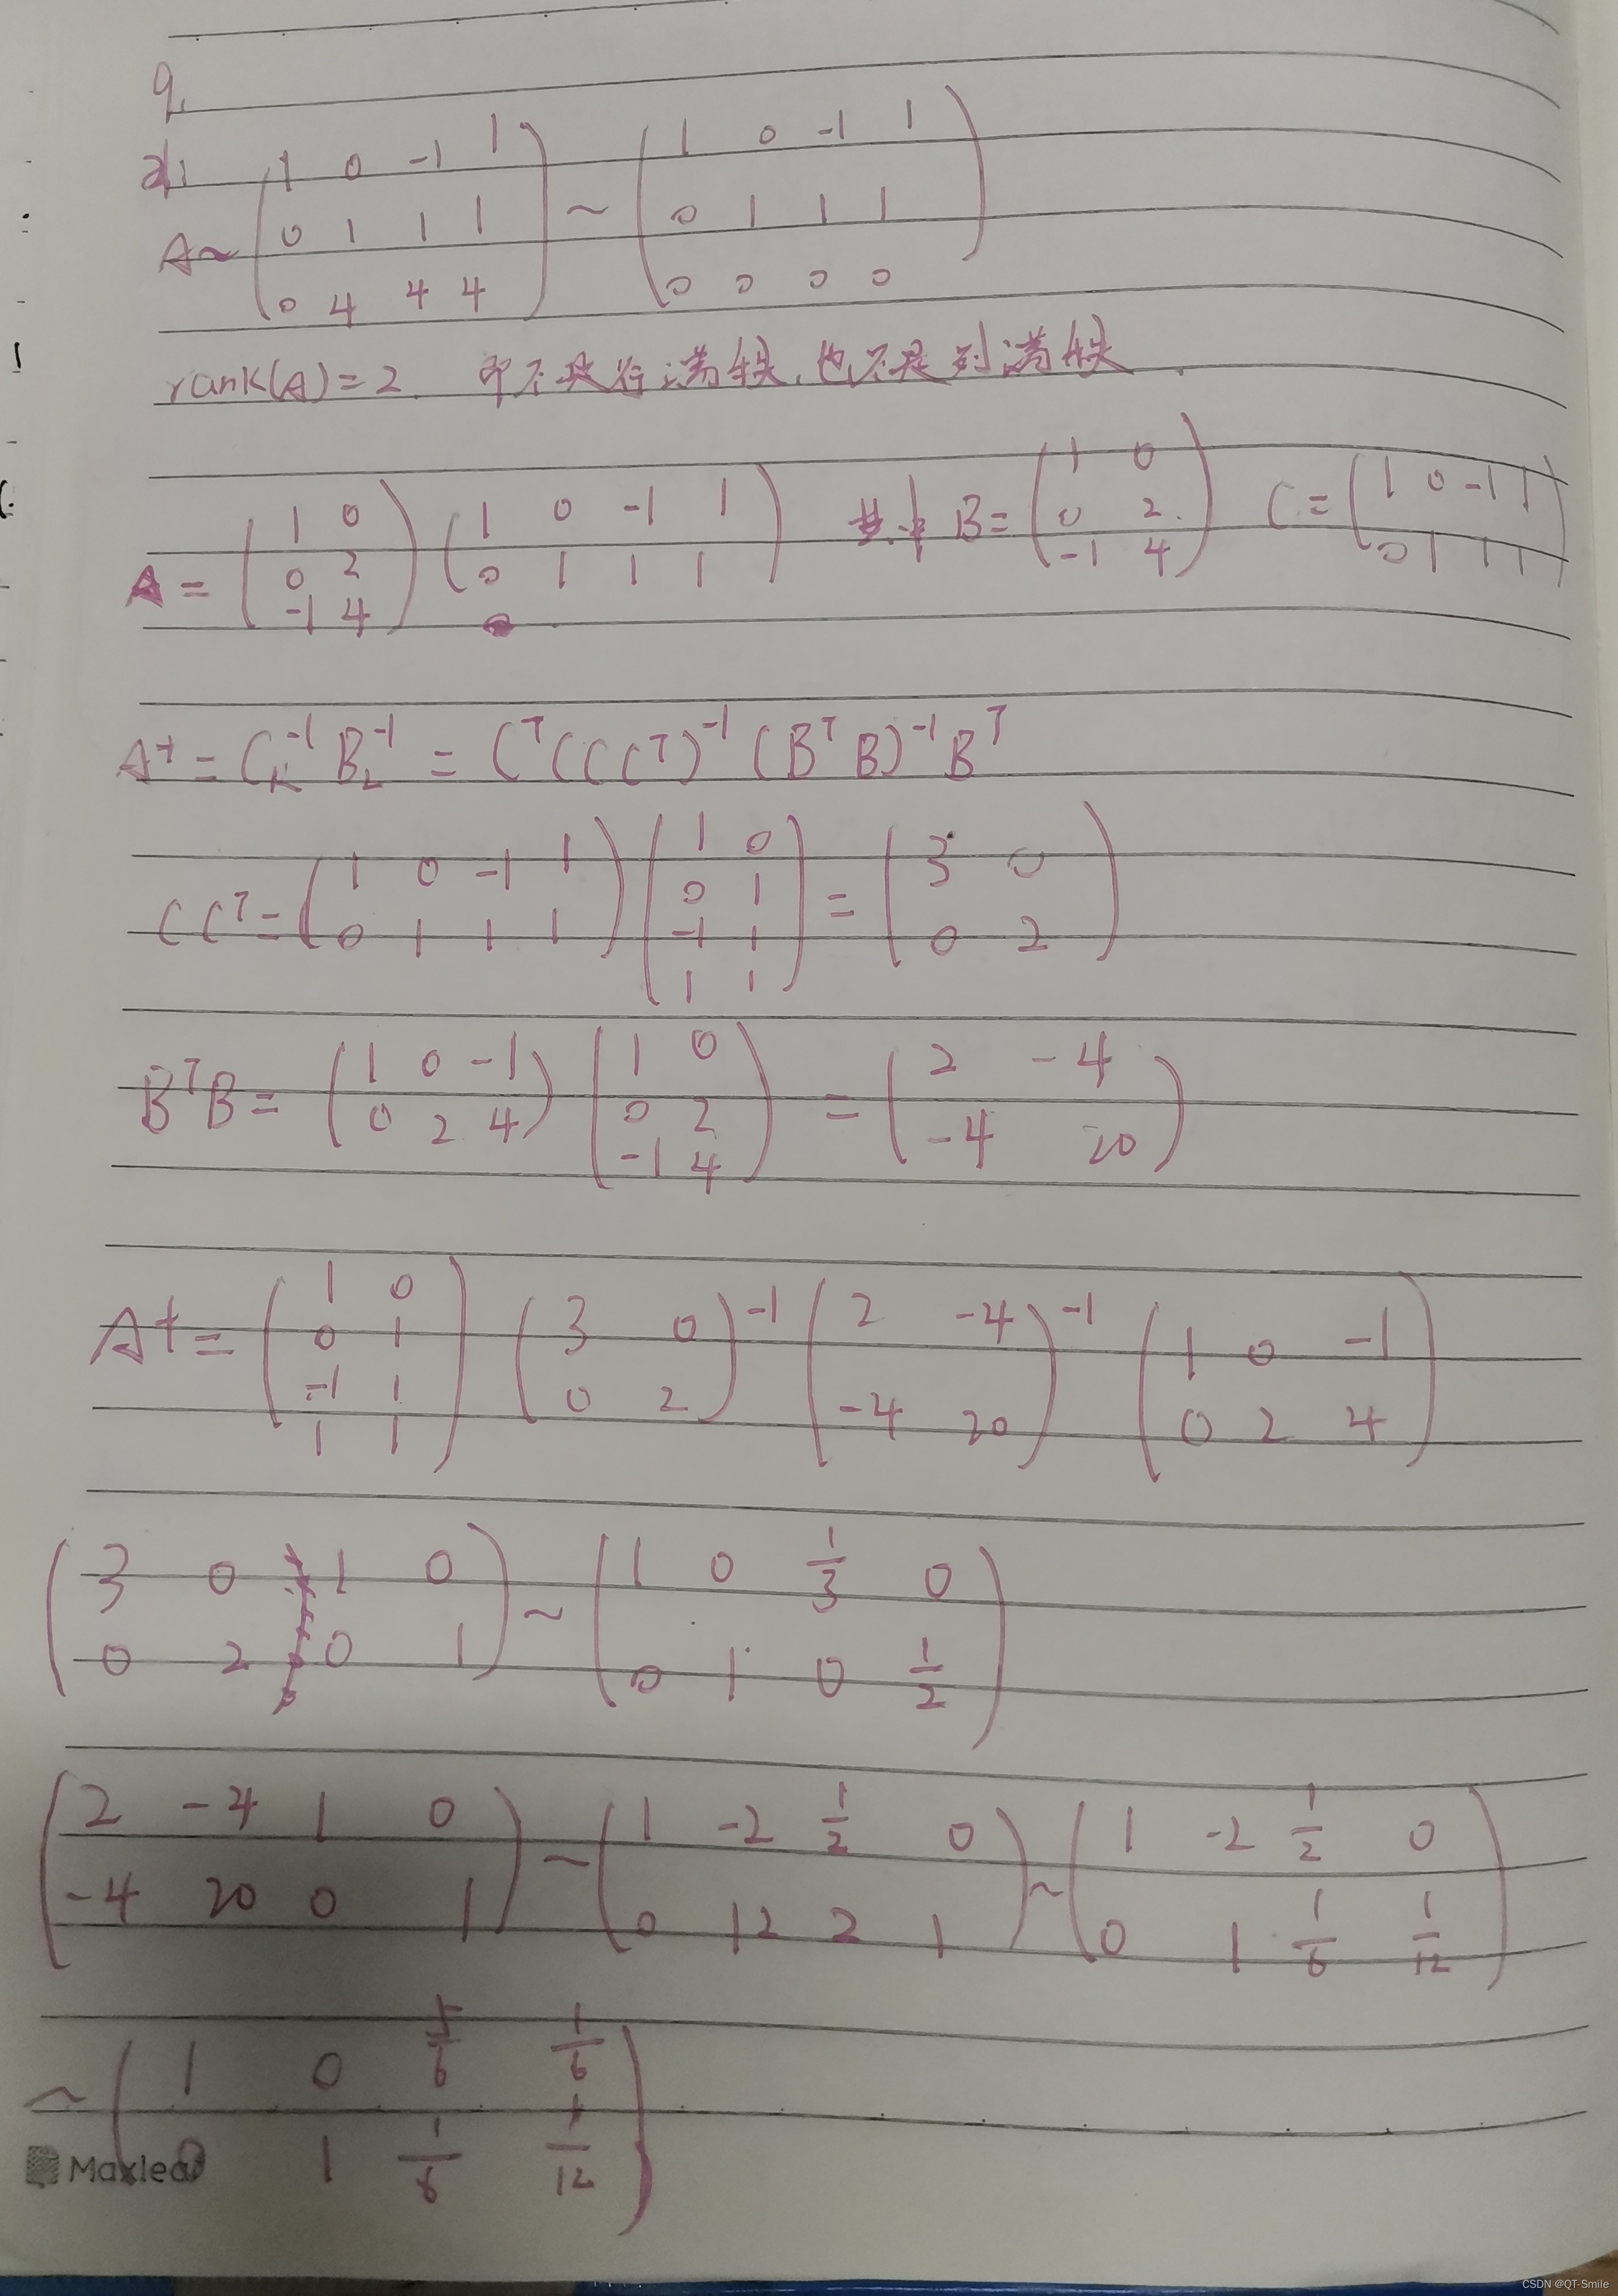 9.
A~ ( 1 0 -1 1 ; 0 1 1 1 ; 0 4 4 4 ) ~ ( 1 0 -1 1 ; 0 1 1 1 ; 0 0 0 0 )
rank(A)=2. 即不是行满秩,也不是列满秩.
A = ( 1 0 ; 0 2 ; -1 4 ) ( 1 0 -1 1 ; 0 1 1 1 ) B= ( 1 0 ; 0 2 ; -1 4 ) C= ( 1 0 -1 1 ; 0 1 1 1 )
A⁺ = C_R⁻¹ B_L⁻¹ = Cᵀ(CCᵀ)⁻¹(BᵀB)⁻¹Bᵀ
CCᵀ= ( 1 0 -1 1 ; 0 1 1 1 ) ( 1 0 ; 0 1 ; -1 1 ; 1 1 ) = ( 3 0 ; 0 2 )
BᵀB= ( 1 0 -1 ; 0 2 4 ) ( 1 0 ; 0 2 ; -1 4 ) = ( 2 -4 ; -4 20 )
A⁺= ( 1 0 ; 0 1 ; -1 1 ; 1 1 ) ( 3 0 ; 0 2 )⁻¹ ( 2 -4 ; -4 20 )⁻¹ ( 1 0 -1 ; 0 2 4 )
( 3 0 1 0 ; 0 2 0 1 ) ~ ( 1 0 1/3 0 ; 0 1 0 1/2 )
( 2 -4 1 0 ; -4 20 0 1 ) ~ ( 1 -2 1/2 0 ; 0 12 2 1 ) ~ ( 1 -2 1/2 0 ; 0 1 1/6 1/12 )
~ ( 1 0 5/6 1/6 ; 0 1 1/6 1/12 )
Maxleaf
CSDN @QT-Smile